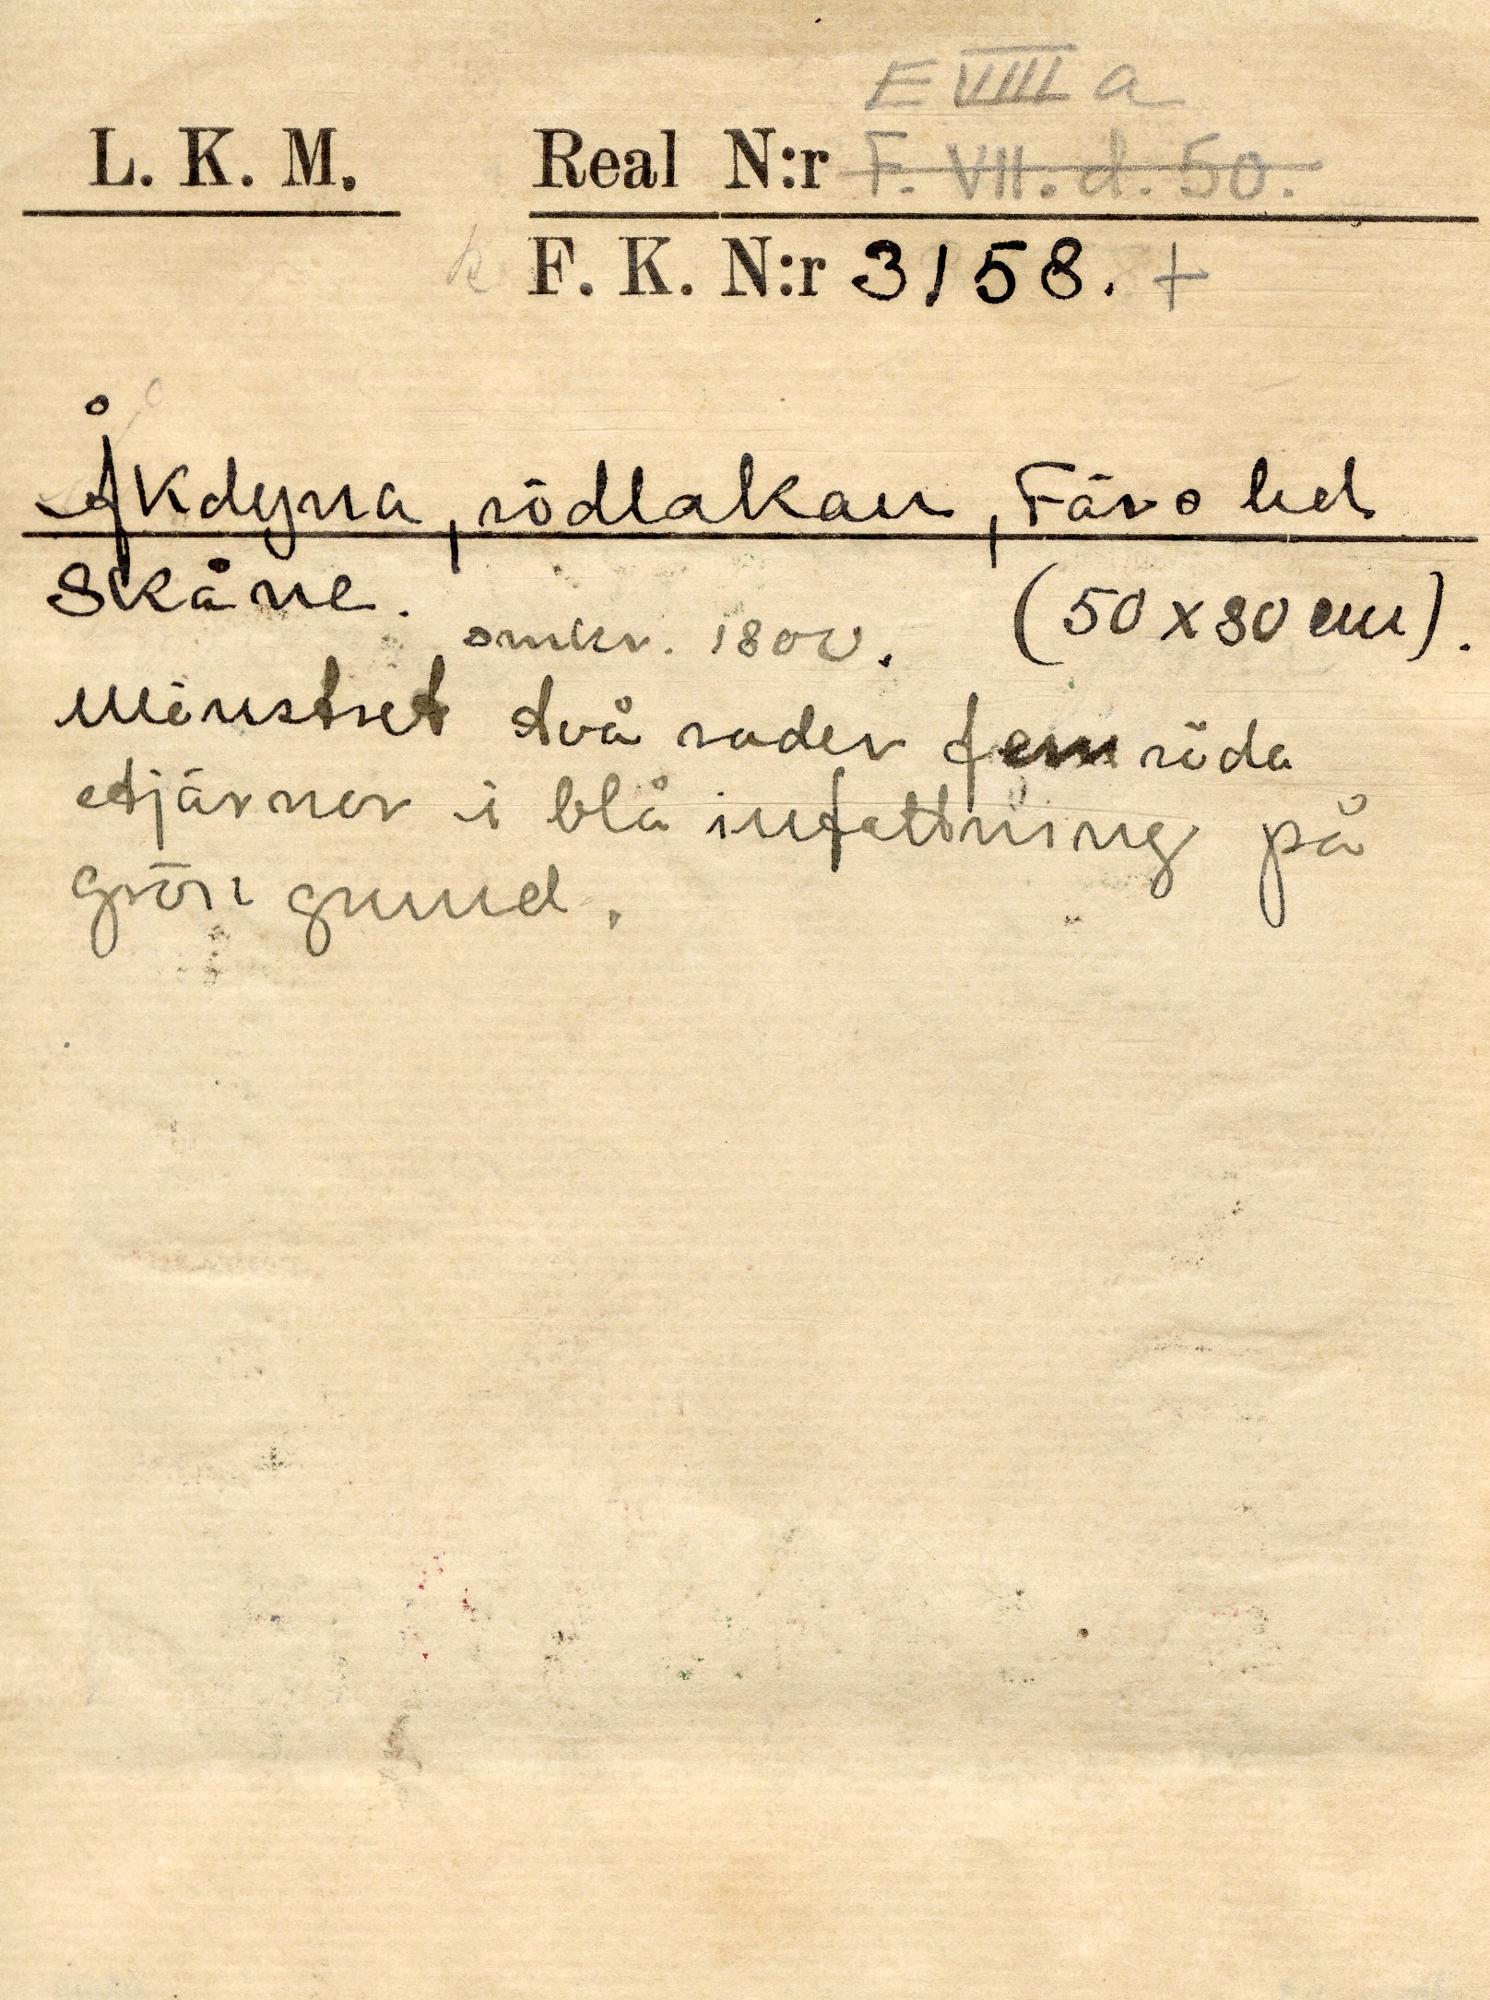 E VIII a
L. K. M. Real N:r F. VII. d. 50.
k F. K. N:r 3158. +
Åkdyna, rödlakan, Färs hd
Skåne. (50 x 80 cm).
omkr. 1800.
Mönstret två rader fem röda
stjärnor i blå infattning på
grön grund.